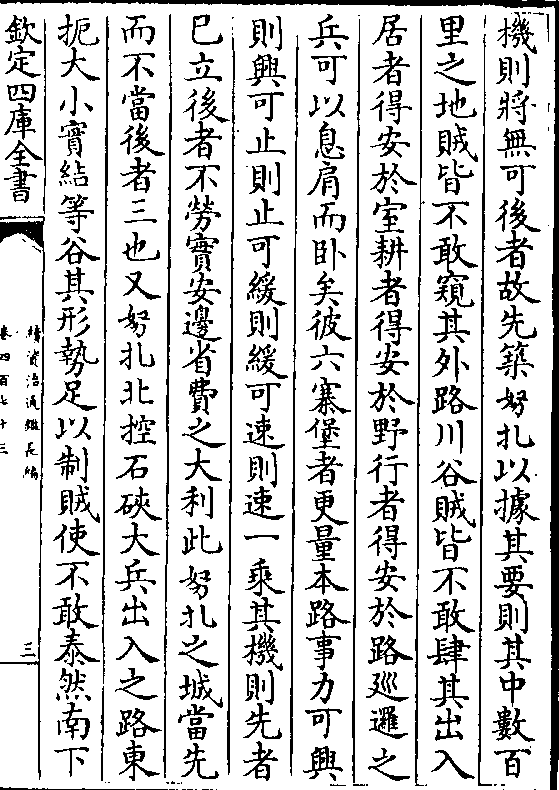 機則將無可後者故先築努扎以據其要則其中數百
里之地賊皆不敢窺其外路川谷賊皆不敢肆其出入
居者得安於室耕者得安於野行者得安於路廵邏之
兵可以息肩而卧矣彼六寨堡者更量本路事力可興
則興可止則止可緩則緩可速則速一乘其機則先者
已立後者不勞實安邊省費之大利此努扎之城當先
而不當後者三也又努扎北控石硤大兵出入之路東
扼大小實結等谷其形勢足以制賊使不敢泰然南下
欽定四庫全書
續資治通鑑長編
卷四百七十三
三